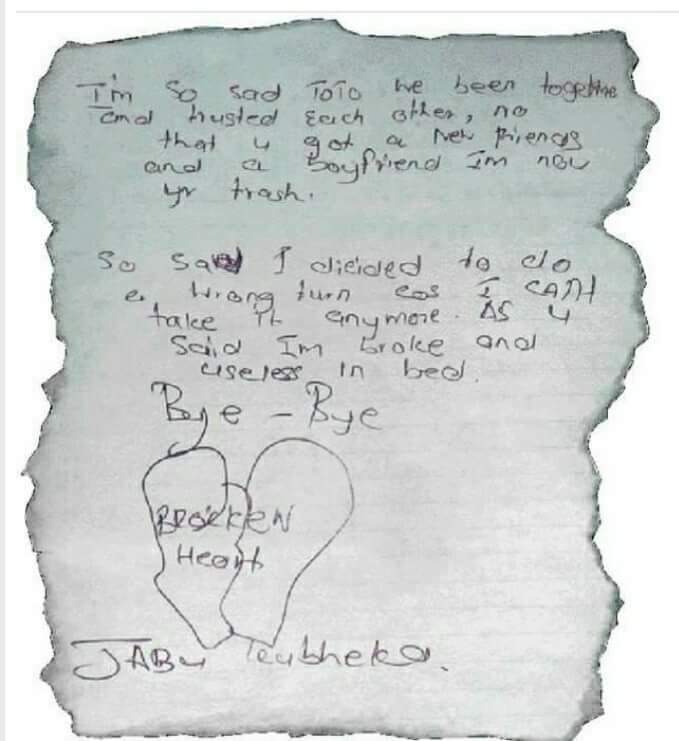 I'm so sad ToTo we been together
and trusted Each other, no
that u got a New friends
and a Boyfriend Im now
yr trash.
So sad I dicided to do
a wrong turn cos I CANT
take it anymore. AS u
Said Im broke and
useless in bed.
Bye - Bye
BROKKEN
Heart
JABu